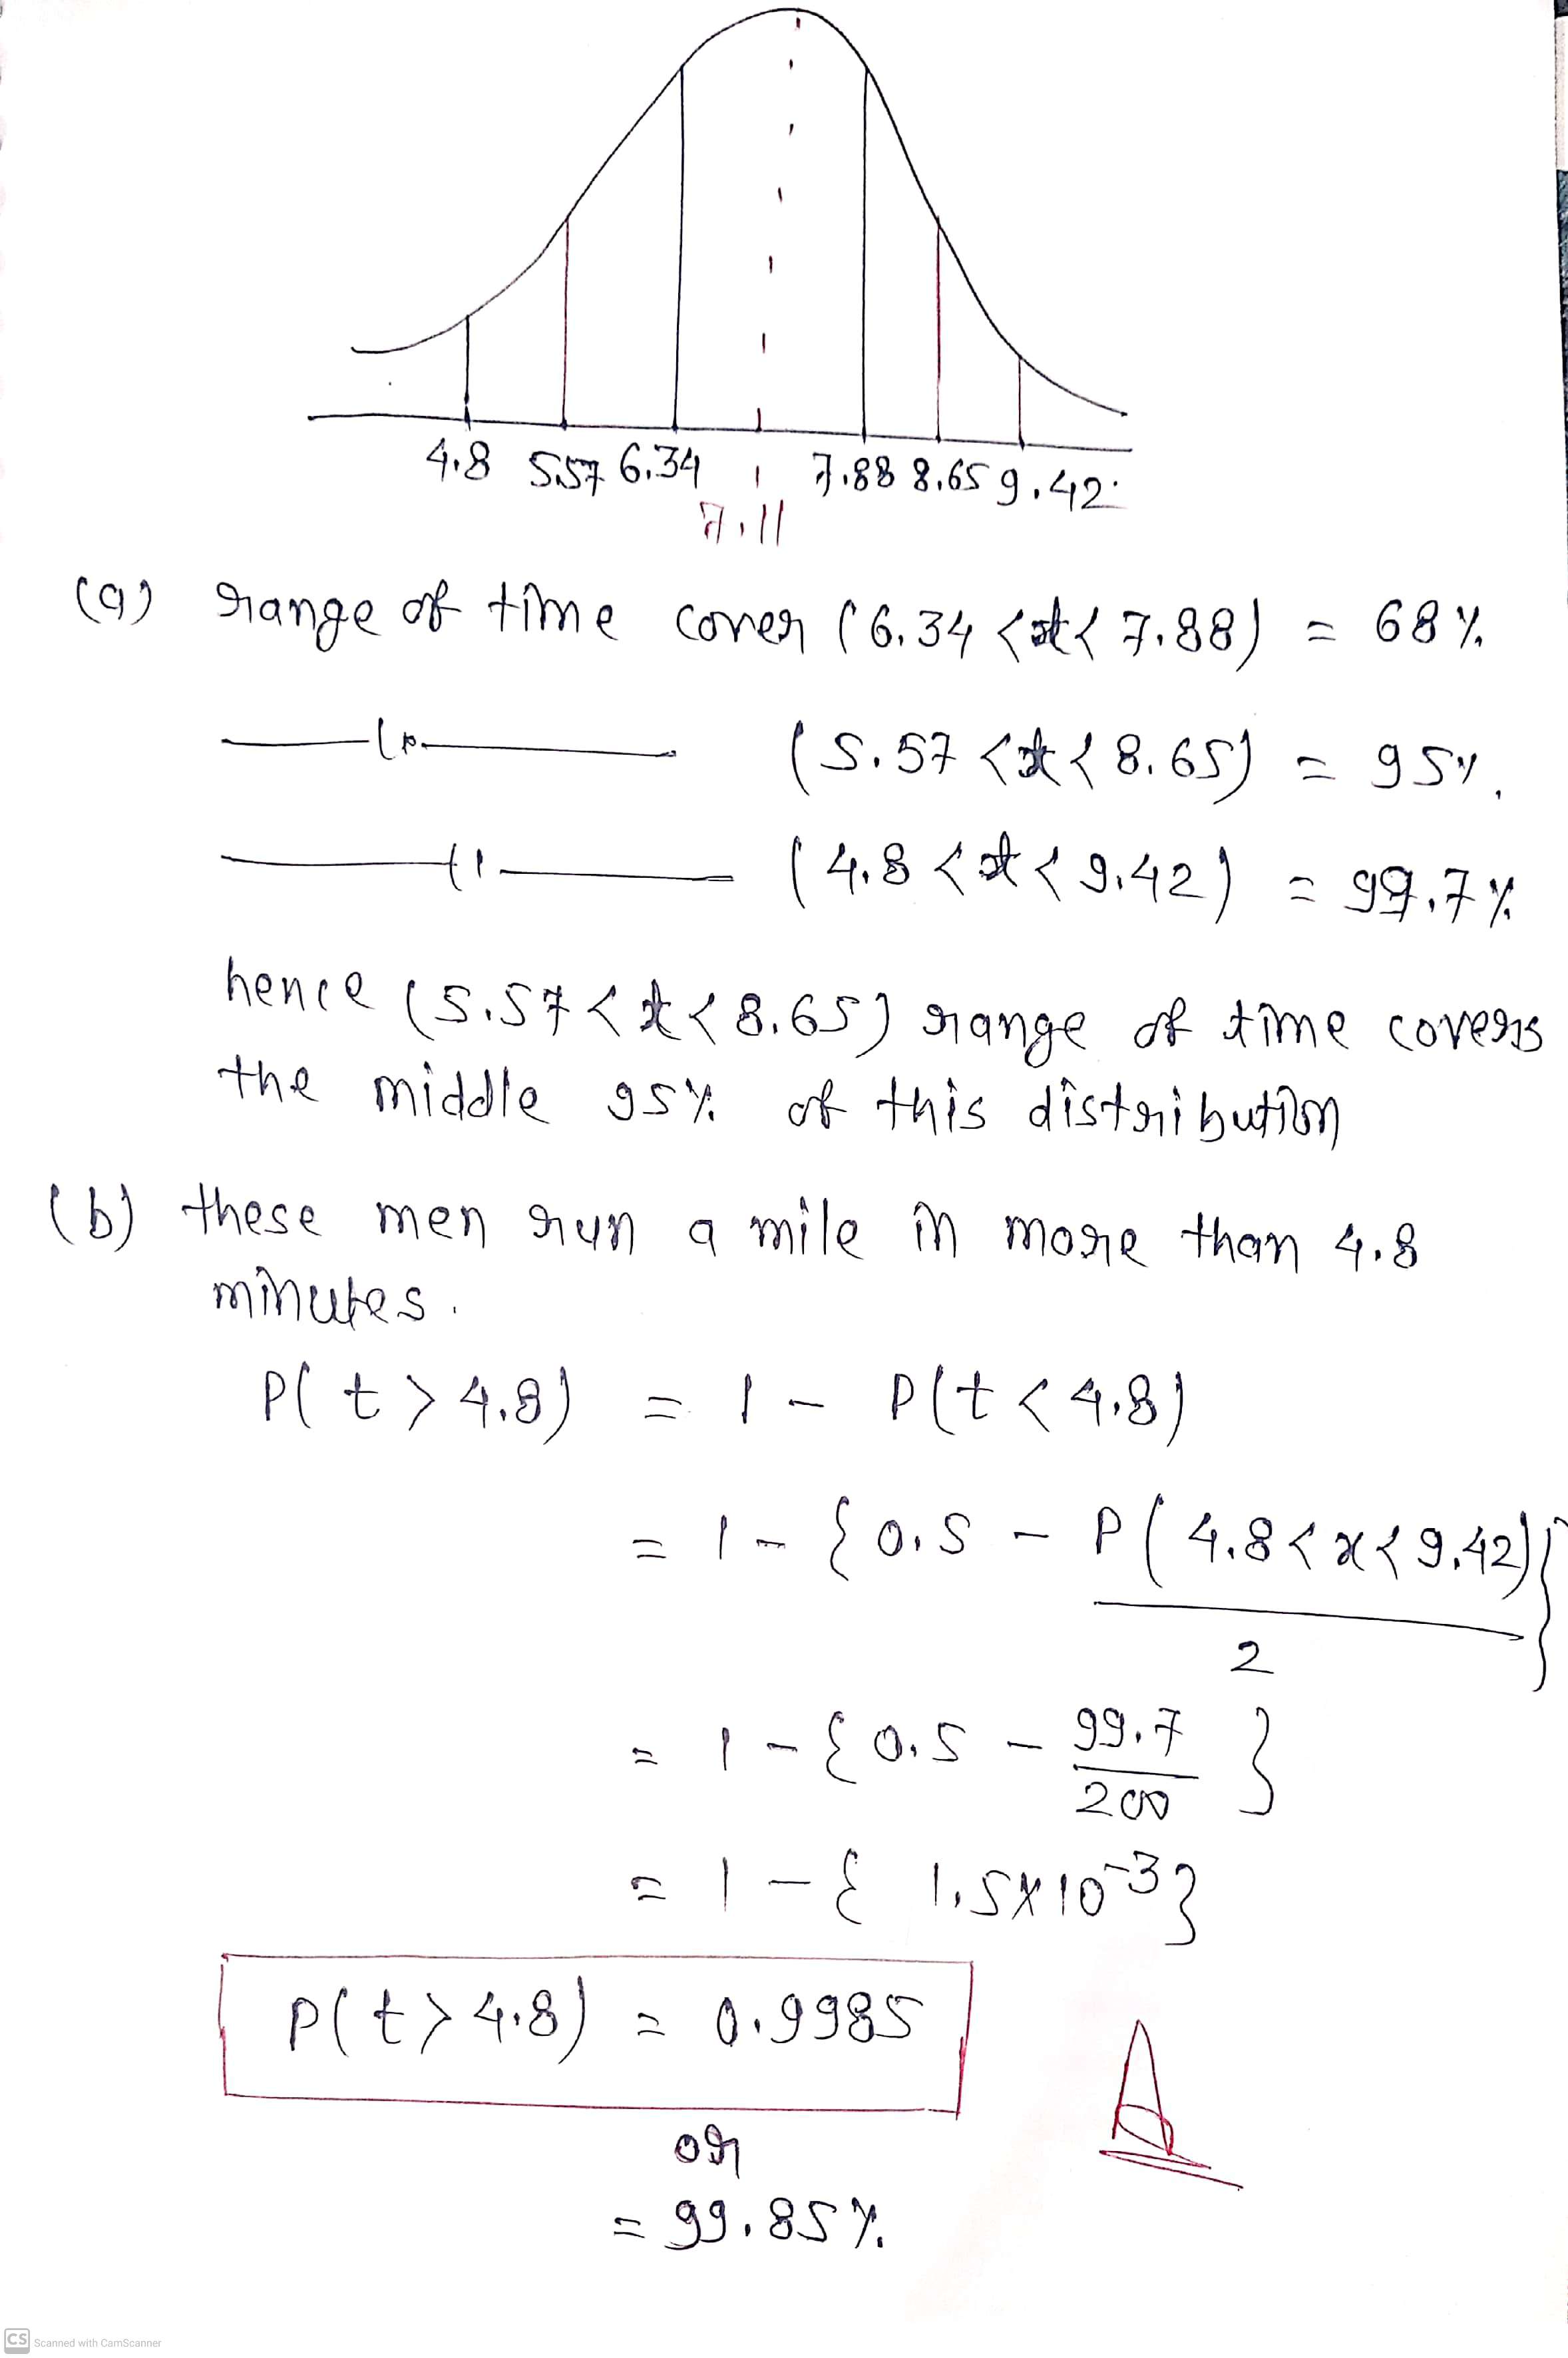 4.8 5.57 6.34 7.88 8.65 9.42
7.11
(a) range of time cover (6.34 <t< 7.88) = 68%
(5.57 <t< 8.65) = 95%
(4.8 <t< 9.42) = 99.7%
hence (5.57 <t< 8.65) range of time covers
the middle 95% of this distribution
(b) these men run a mile in more than 4.8
minutes.
P(t > 4.8) = 1 - P(t < 4.8)
= 1 - {0.5 - P(4.8 < x < 9.42)}
2
= 1 - {0.5 - 99.7 }
200
= 1 - { 1.5×10^-3}
P(t > 4.8) = 0.9985
or
= 99.85%
CS Scanned with CamScanner